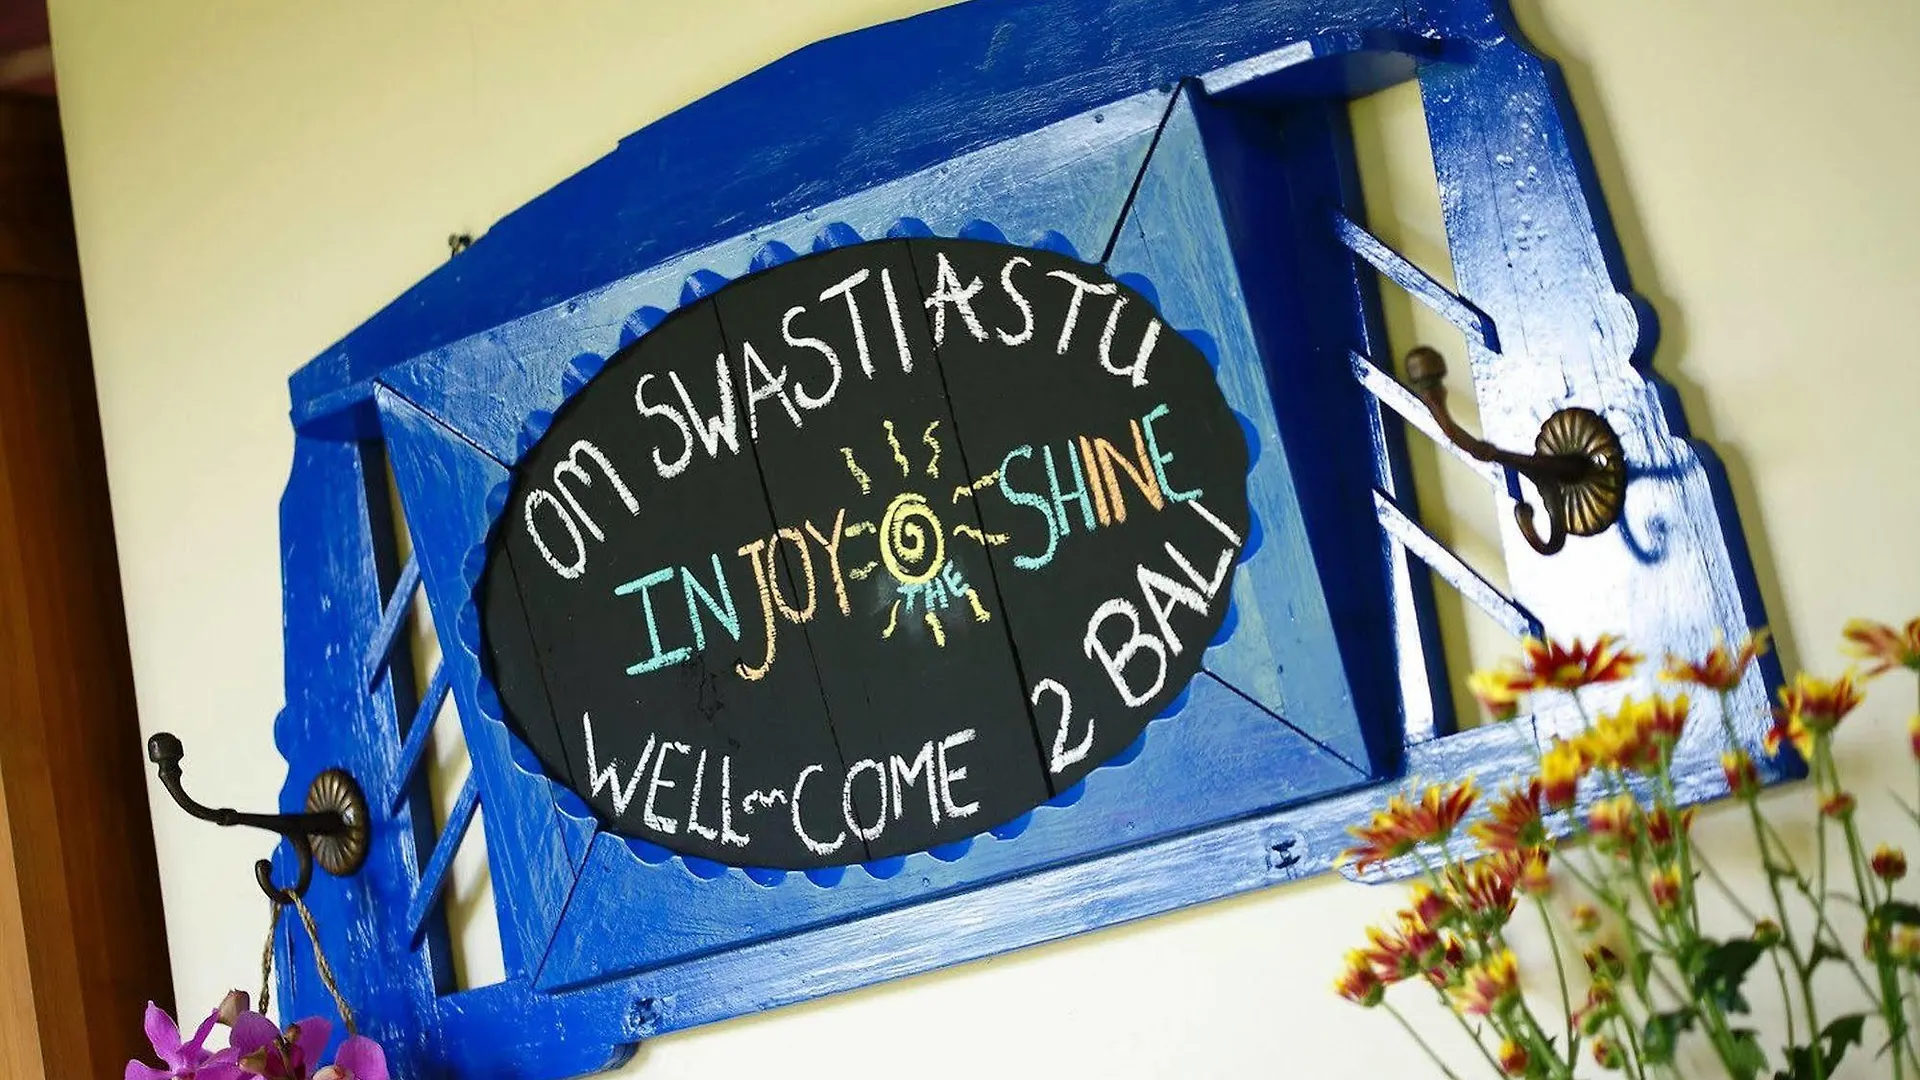 OM SWASTIASTU
INJOY THE SHINE
WELL~COME 2 BALI